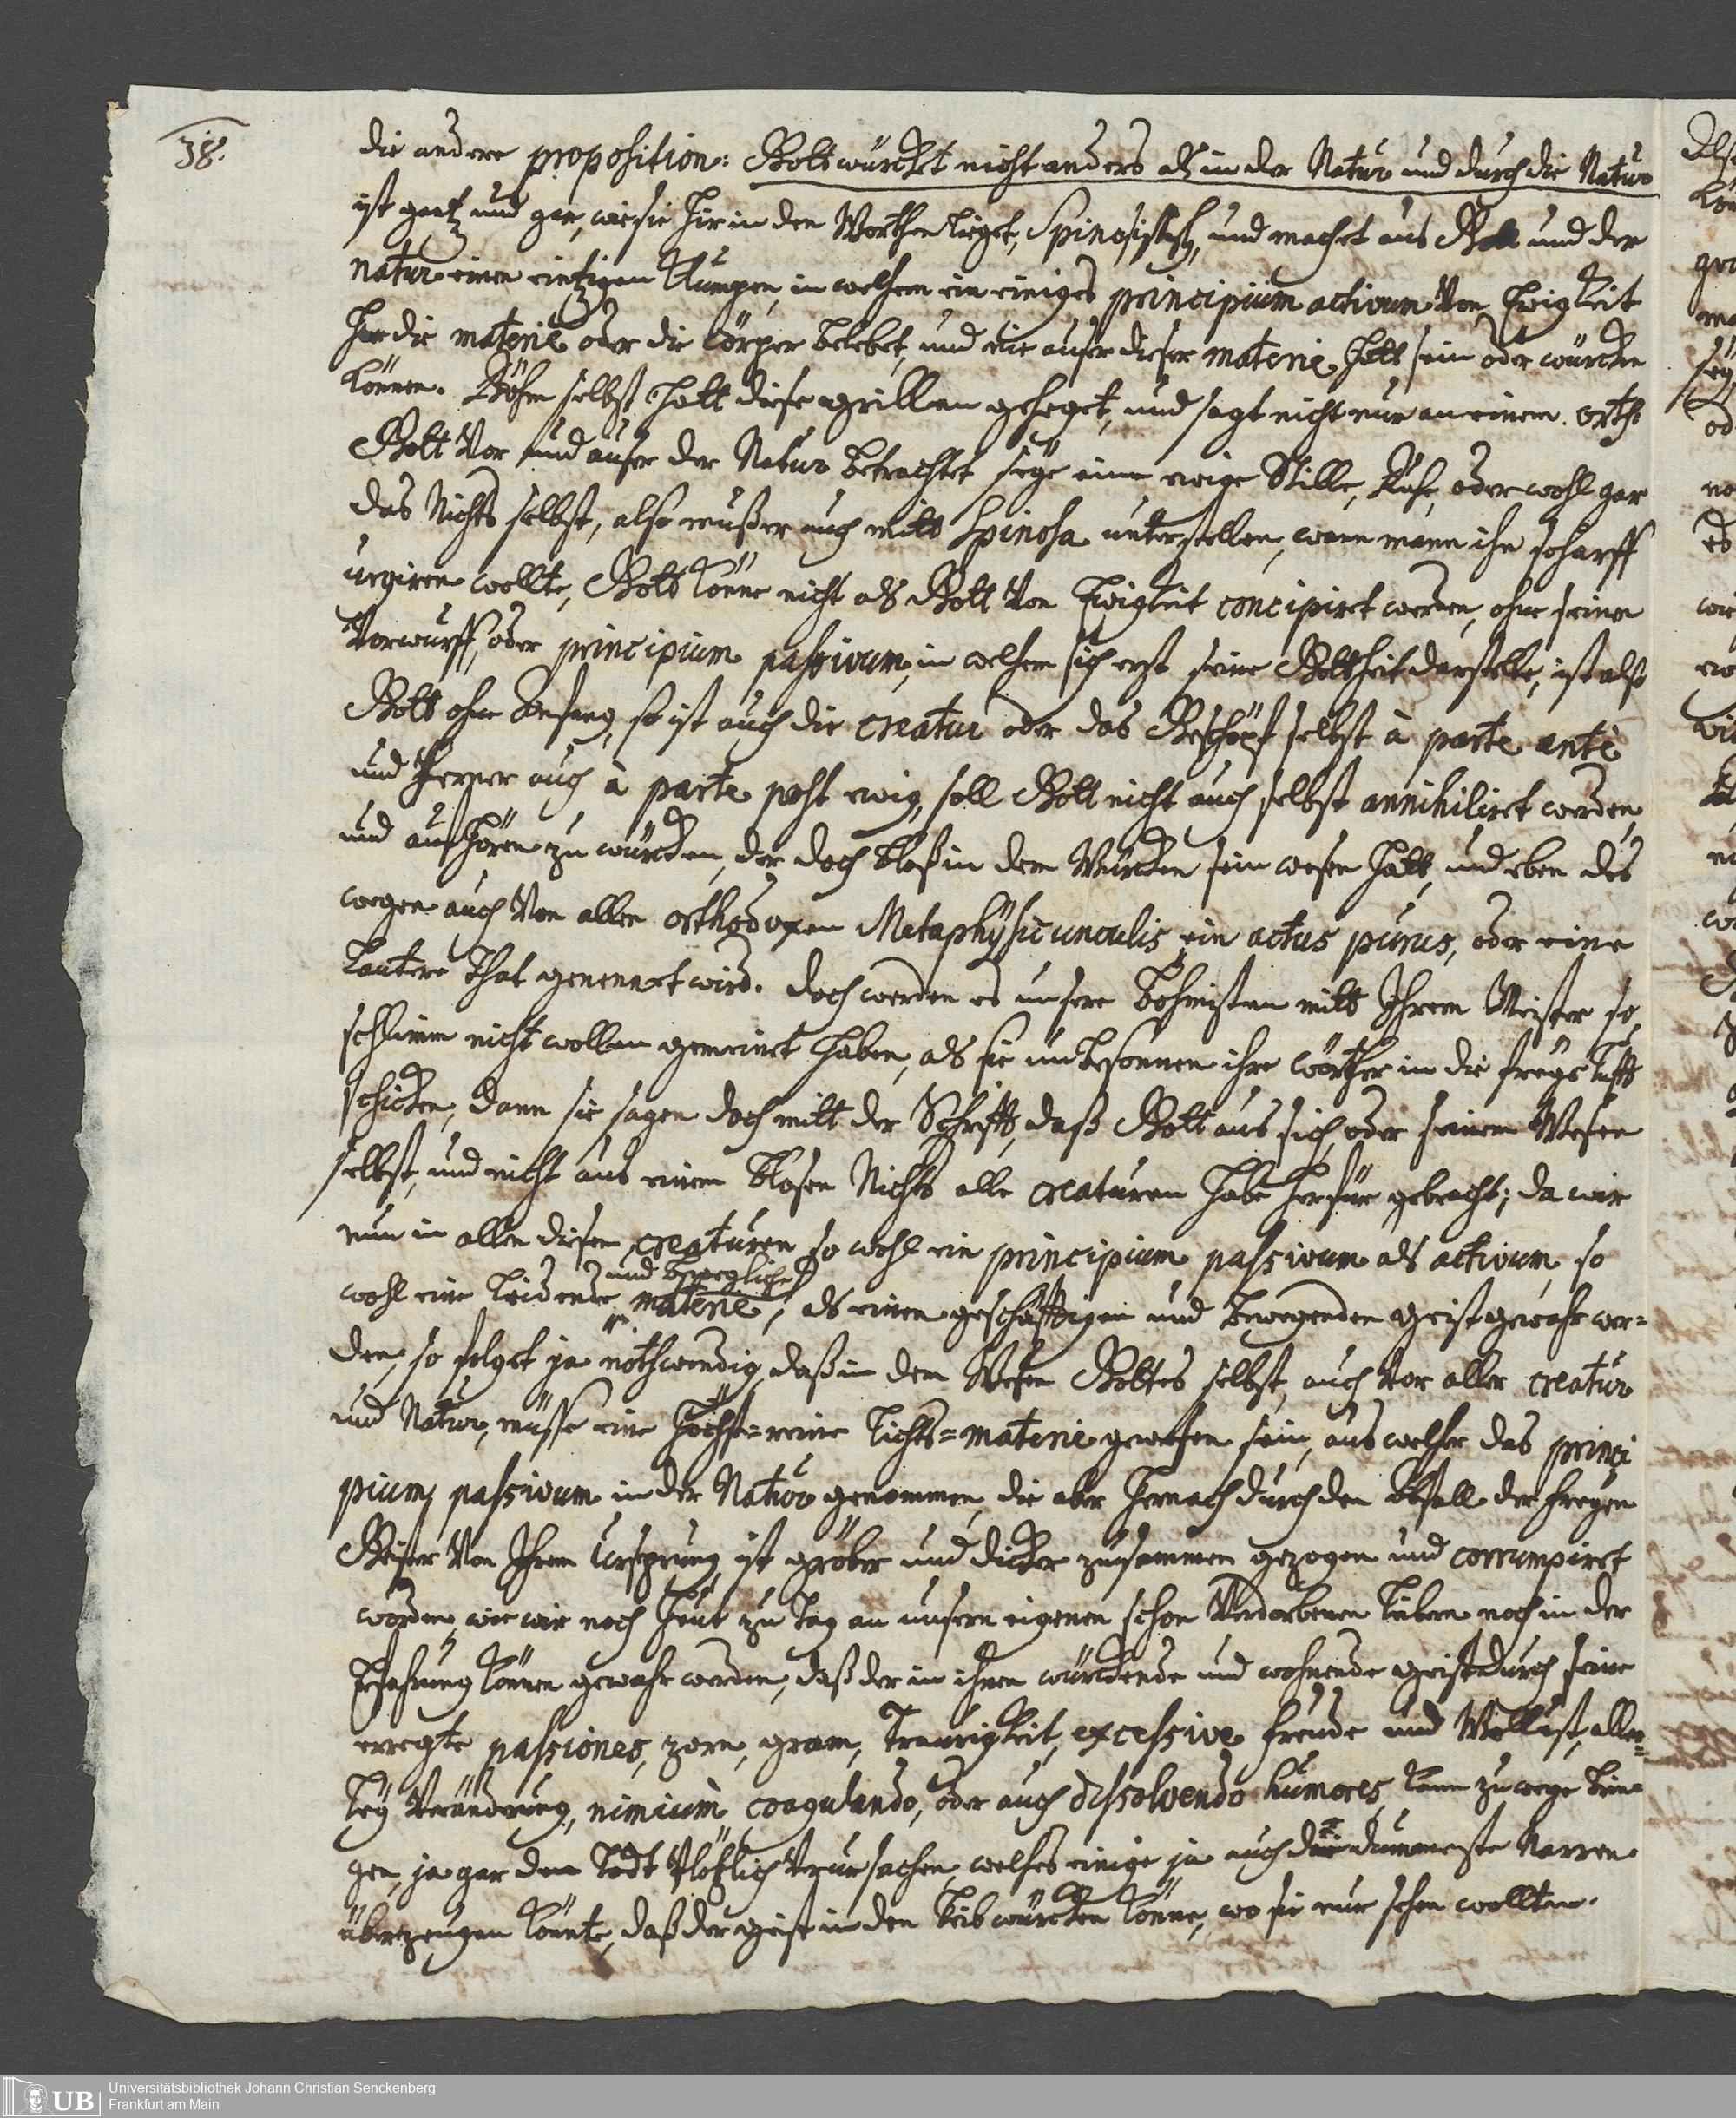 38.
die andere proposition: Gott würcket nicht anders als in der Natur und durch die Natur
ist gantz und gar, wie sie hir in den Worthen lieget, Spinosistisch, und machet aus Gott und der
natur einen eintzigen Klumpen, in welchem ein einiges principium activum von Ewigkeit
her die materie oder die cörper belebet, und nie auser dieser materie hatt sein oder würcken
können. Böhm selbst hatt diese grillen geheget, und sagt nicht nur an einem orth:
Gott vor und auser der Natur betrachtet seye eine ewige Stille, Ruhe, oder wohl gar
das Nichts selbst, also mußer auch mitt Spinosa unterstellen, wann mann ihn scharff
urgiren wollte, Gott könne nicht als Gott von Ewigkeit concipiret werden, ohne seinen
Vorwurff, oder principium passivum, in welchem sich erst seine Gottheit darstelle, ist also
Gott ohne Anfang, so ist auch die creatur oder das Geschöpf selbst à parte antè
und ferner auch à parte post ewig, soll Gott nicht auch selbst annihiliret werden,
und aufhören zu würcken, der doch bloß in dem Würcken sein wesen hatt, und eben des
wegen auch von allen orthodoxen Metaphysicunculis ein actus purus, oder eine
lautere That genennet wird. doch werden es unsere Böhmisten mitt Ihrem Meister so
schlimm nicht wollen gemeinet haben, als sie unbesonnen ihre wörther in die freye lufft
schicken, dann sie sagen doch mitt der Schrifft, daß Gott aus sich, oder seinem Wesen
selbst, und nicht aus einem blosen Nichts alle creaturen habe herfür gebracht; da wir
nun in allen diesen creaturen so wohl ein principium passivum als activum, so
und bewegliche
wohl eine leidende materie, als einen geschäfftigen und bewegenden geist gewahr wer=
den, so folget ja nothwendig, daß in dem Wesen Gottes selbst, auch vor aller creatur
und Natur, müsse eine höchst=reine lichts=materie gewesen sein, aus welcher das princi
pium passivum in der Natur genommen, die aber hernach durch den Abfall der freyen
Geister von Ihrem Ursprung, ist gröber und dicker zusammen gezogen und corrumpiret
worden, wie wir noch heut zu tag an unsern eigenen schon verdorbenen leibern noch in der
Erfahrung können gewahr werden, daß der in ihnen würckende und wohnende geist durch seine
erregte passiones, zorn, gram, Traurigkeit, excessive freude und Wollust, aller=
ley Veränderung, nimium coagulando, oder auch dissolvendo humores, kann zuwege brin=
gen, ja gar den Todt plötzlich verursachen, welches einige ja auch die dummeste Narren
überzeugen könnte, daß der geist in den leib würcken könne, wo sie nur sehen wollten.
Universitätsbibliothek Johann Christian Senckenberg
Frankfurt am Main
UB